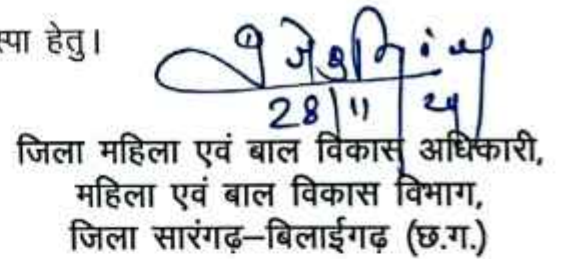 हेतु।
28/11/24
जिला महिला एवं बाल विकास अधिकारी,
महिला एवं बाल विकास विभाग,
जिला सारंगढ़–बिलाईगढ़ (छ.ग.)